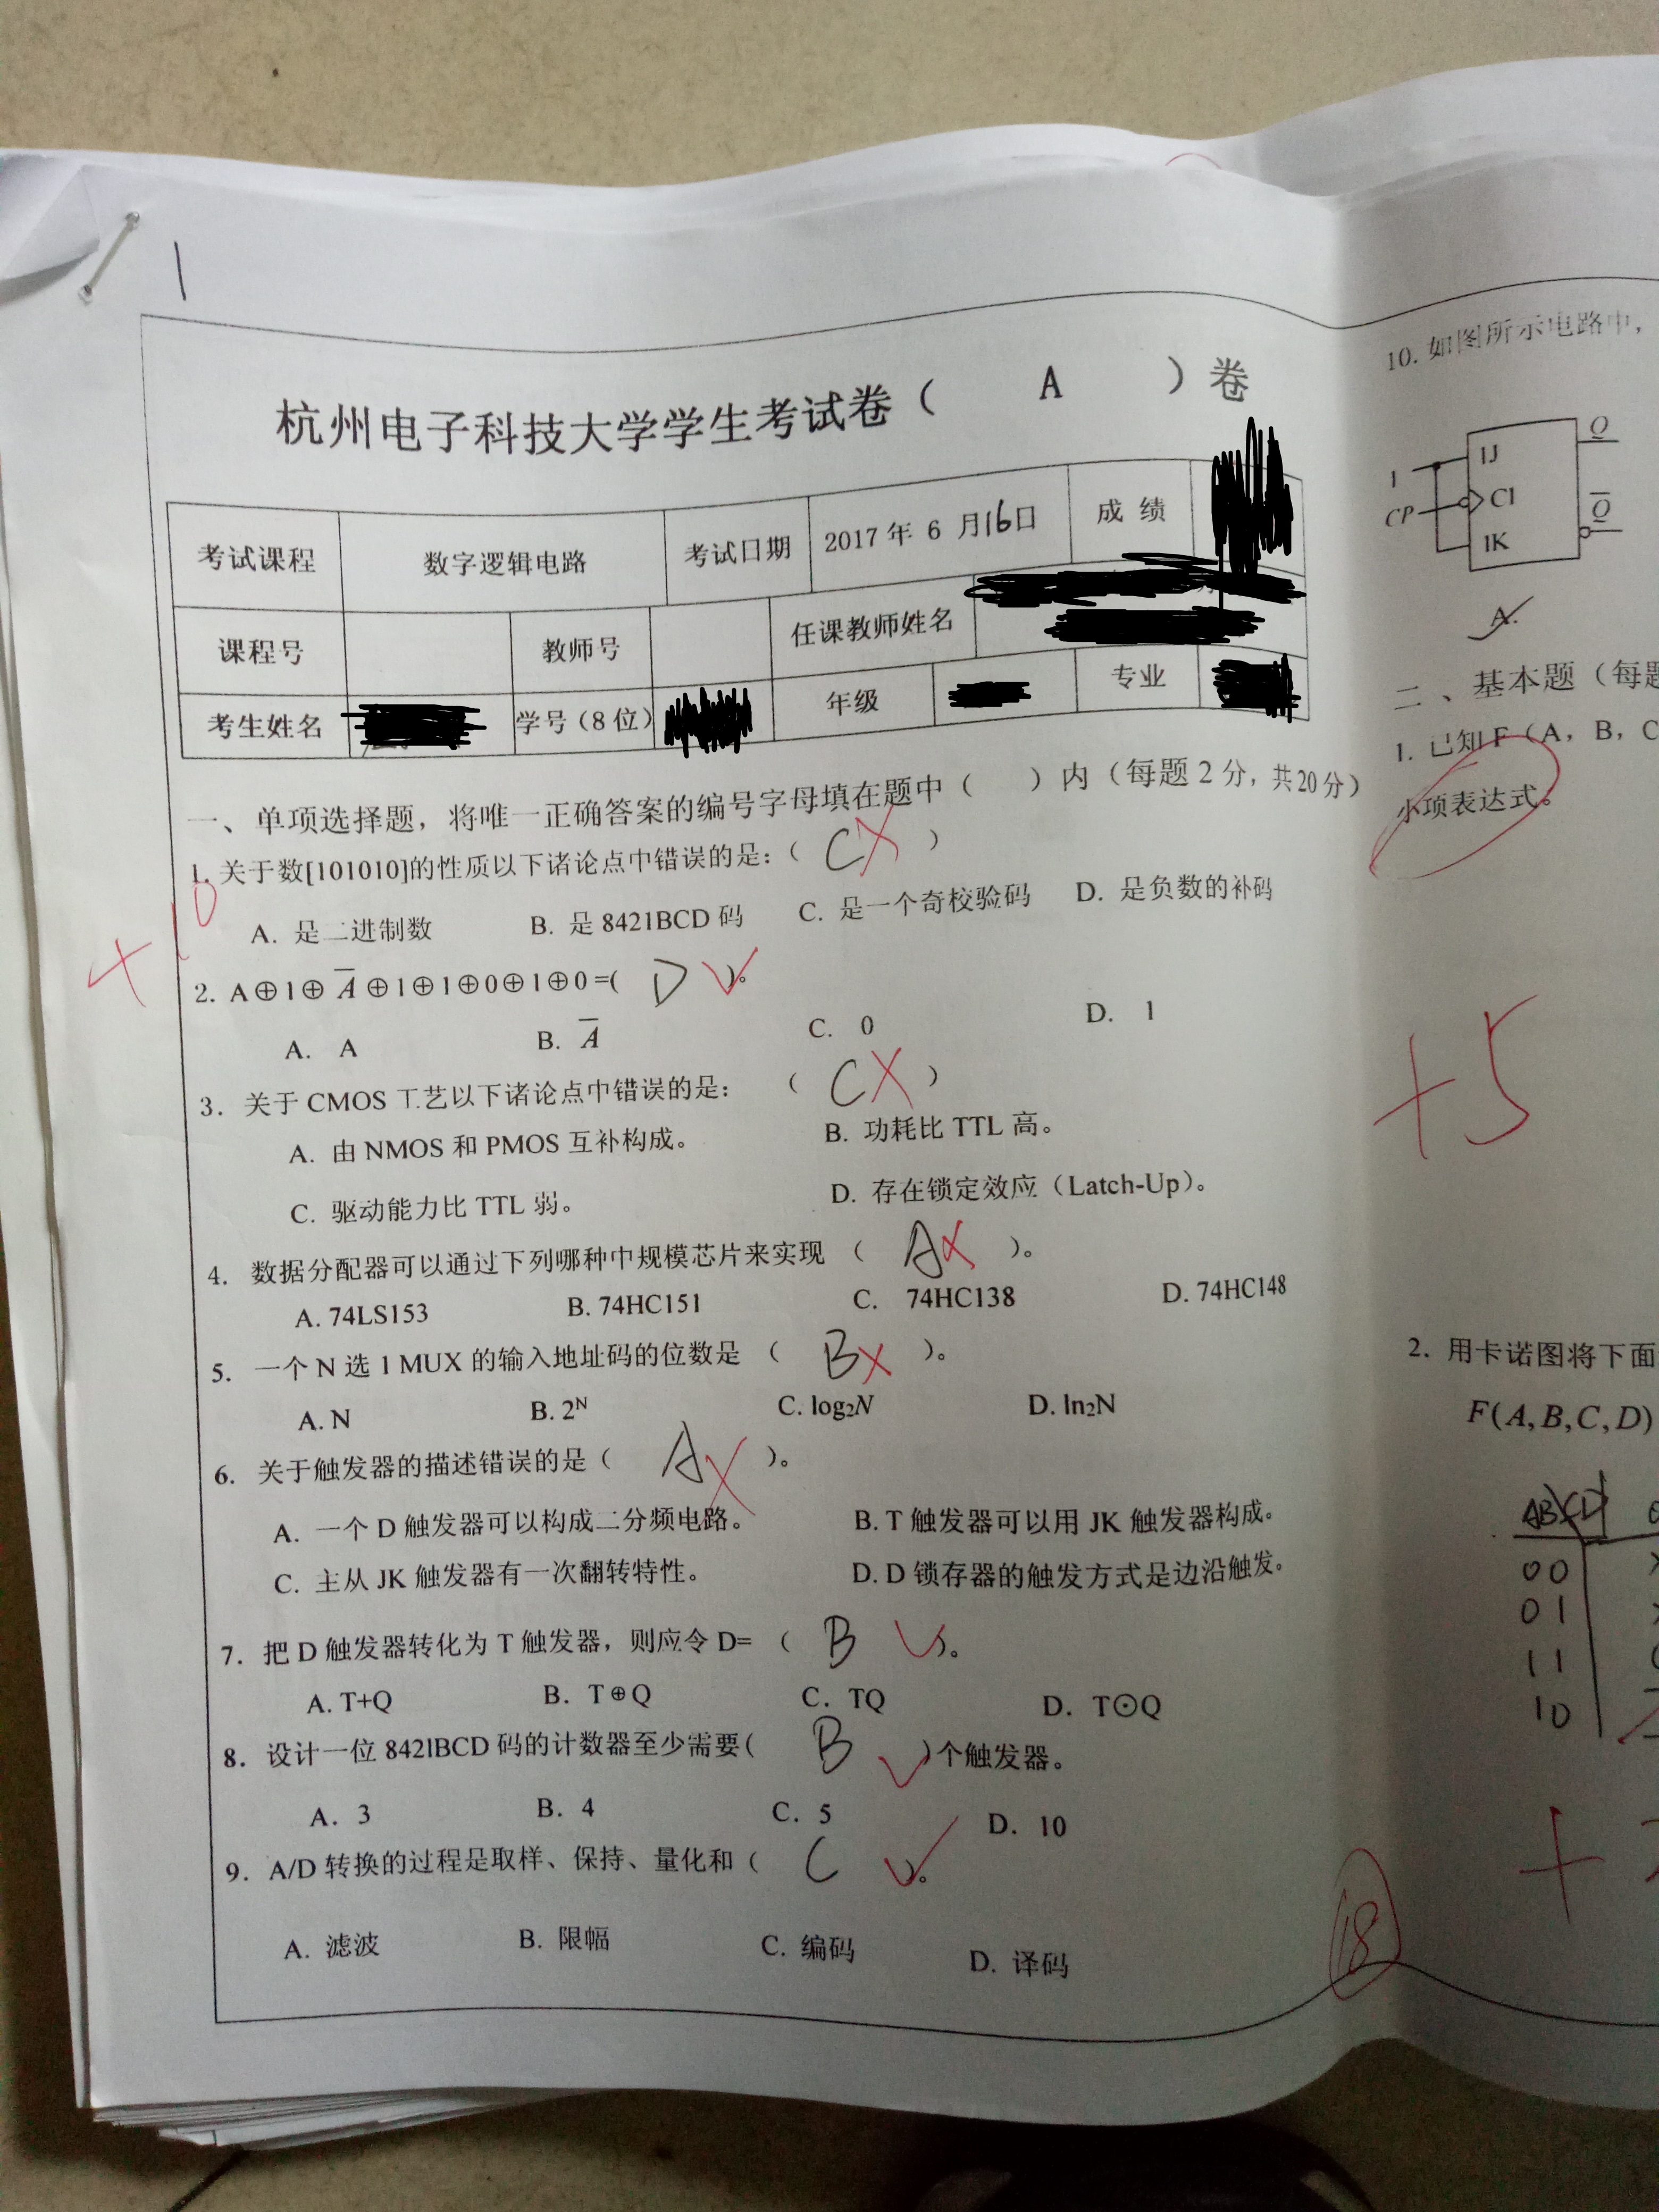 1
杭州电子科技大学学生考试卷（ A ）卷
考试课程 数字逻辑电路 考试日期 2017年 6 月16日 成 绩
课程号 教师号 任课教师姓名
考生姓名 学号（8 位） 年级 专业
一、单项选择题，将唯一正确答案的编号字母填在题中（ ）内（每题 2 分，共20分）
1. 关于数[101010]的性质以下诸论点中错误的是：（ C ）
+10
A. 是二进制数 B. 是 8421BCD 码 C. 是一个奇校验码 D. 是负数的补码
2. A⊕1⊕A̅⊕1⊕1⊕0⊕1⊕0=( D )。
A. A B. A̅ C. 0 D. 1
3. 关于 CMOS 工艺以下诸论点中错误的是： （ C ）
A. 由 NMOS 和 PMOS 互补构成。 B. 功耗比 TTL 高。
C. 驱动能力比 TTL 弱。 D. 存在锁定效应（Latch-Up）。
4. 数据分配器可以通过下列哪种中规模芯片来实现 （ A ）。
A. 74LS153 B. 74HC151 C. 74HC138 D. 74HC148
5. 一个 N 选 1 MUX 的输入地址码的位数是 （ B ）。
A. N B. 2ᴺ C. log₂N D. ln₂N
6. 关于触发器的描述错误的是（ A ）。
A. 一个 D 触发器可以构成二分频电路。 B. T 触发器可以用 JK 触发器构成。
C. 主从 JK 触发器有一次翻转特性。 D. D 锁存器的触发方式是边沿触发。
7. 把 D 触发器转化为 T 触发器，则应令 D= （ B ）。
A. T+Q B. T⊕Q C. TQ D. T⊙Q
8. 设计一位 8421BCD 码的计数器至少需要( B )个触发器。
A. 3 B. 4 C. 5 D. 10
9. A/D 转换的过程是取样、保持、量化和（ C ）。
A. 滤波 B. 限幅 C. 编码 D. 译码
18
10. 如图所示电路中，
1 1J Q
CP C1
1K Q̅
A.
二、基本题（每题
1. 已知 F（A，B，C
小项表达式。
+5
2. 用卡诺图将下面
F(A,B,C,D)
AB CD
00
01
11
10
+